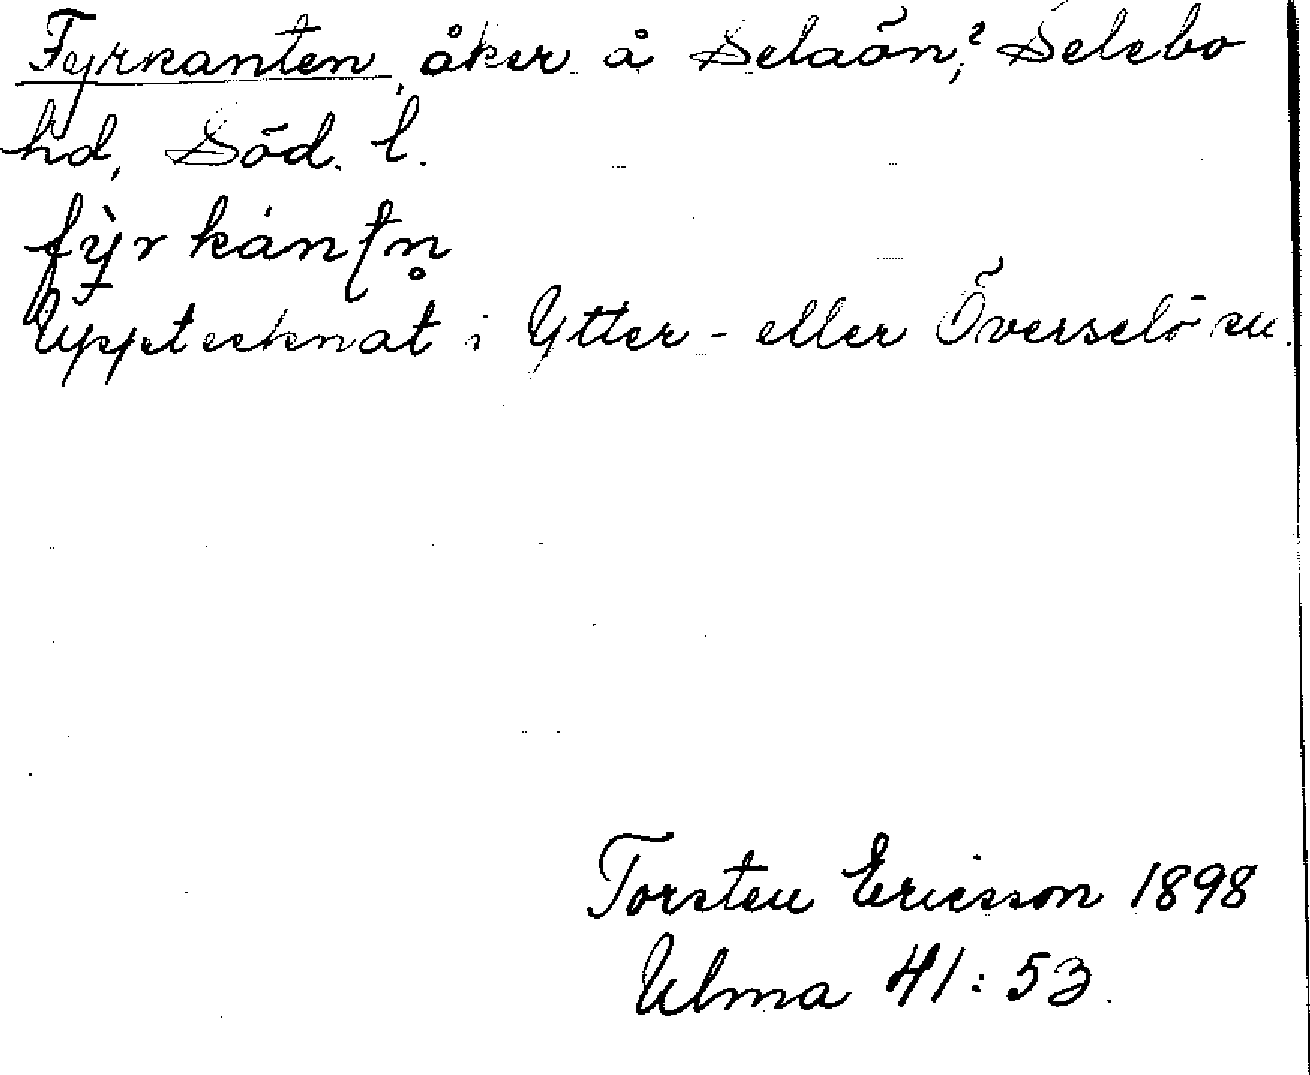 Fyrkanten, åker å Selaön?, Selebo
hd, Söd. l.
fỳr kán tn̥
Upptecknat i Ytter- eller Överselö sn.
Torsten Ericsson 1898
Ulma 41:53.